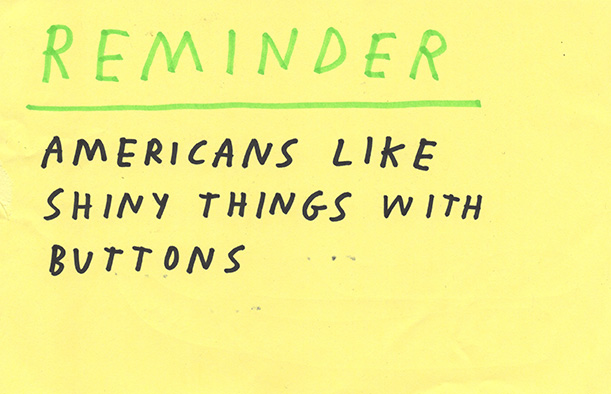 REMINDER
AMERICANS LIKE
SHINY THINGS WITH
BUTTONS